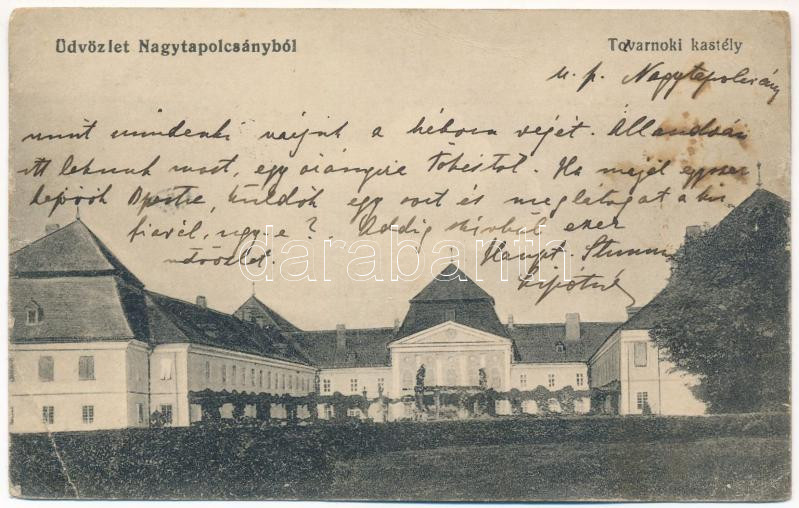 Üdvözlet Nagytapolcsányból
Tovarnoki kastély
u. p. Nagytapolcsány
mint mindenki várjuk a háboru végét. Állandóan
itt lakunk most, egy órányira Tőkéstől. Ha majd egyszer
lejövök Pestre, küldök egy sort és meglátogat a kis
fiával, ugy-e? Addig szívből ezer
üdvözlet.
Haupt-Stummer
Lipótné
darabanth